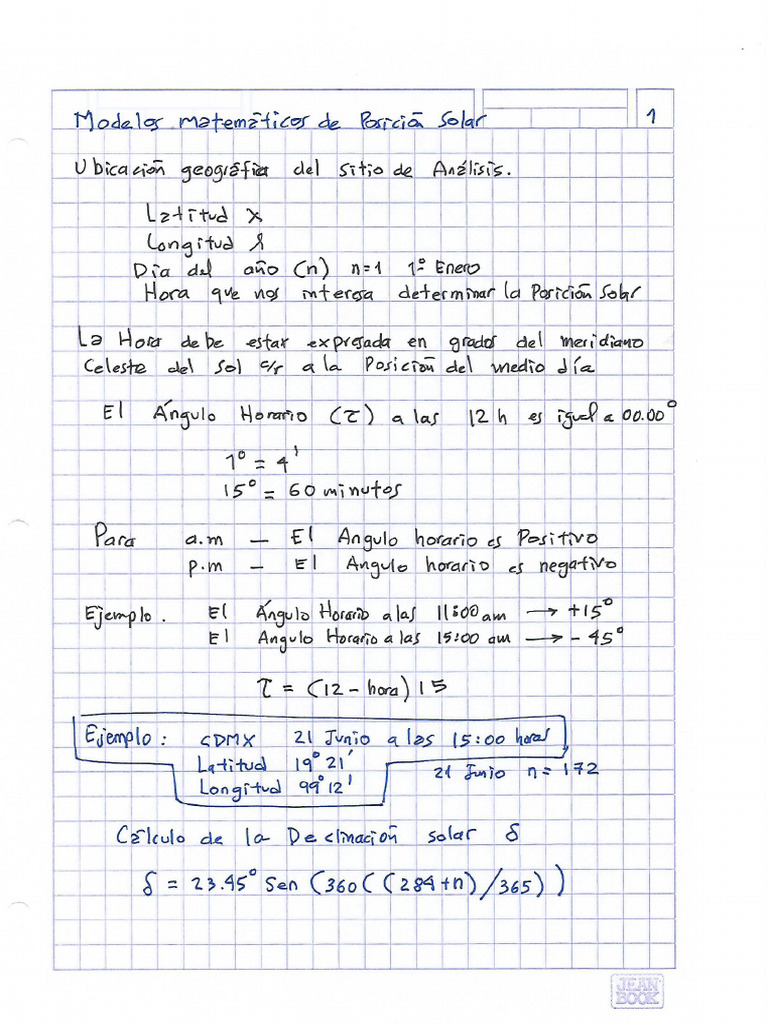 Modelos matemáticos de Posición Solar
1
Ubicación geográfica del sitio de Análisis.
Latitud
Longitud λ
Día del año (n) n=1 1º Enero
Hora que nos interesa determinar la Posición Solar
La Hora debe estar expresada en grados del meridiano
Celeste del Sol c/r a la Posición del medio día
El Ángulo Horario (τ) a las 12 h es igual a 00.00°
1° = 4'
15° = 60 minutos
Para a.m — El Angulo horario es Positivo
p.m — El Angulo horario es negativo
Ejemplo. El Ángulo Horario a las 11:00 am → +15°
El Angulo Horario a las 15:00 am → - 45°
τ = (12 - hora) 15
Ejemplo: CDMX 21 Junio a las 15:00 horas
Latitud 19° 21'
Longitud 99° 12'
21 Junio n = 172
Cálculo de la Declinación solar δ
δ = 23.45° Sen (360((284+n)/365))
JEAN BOOK